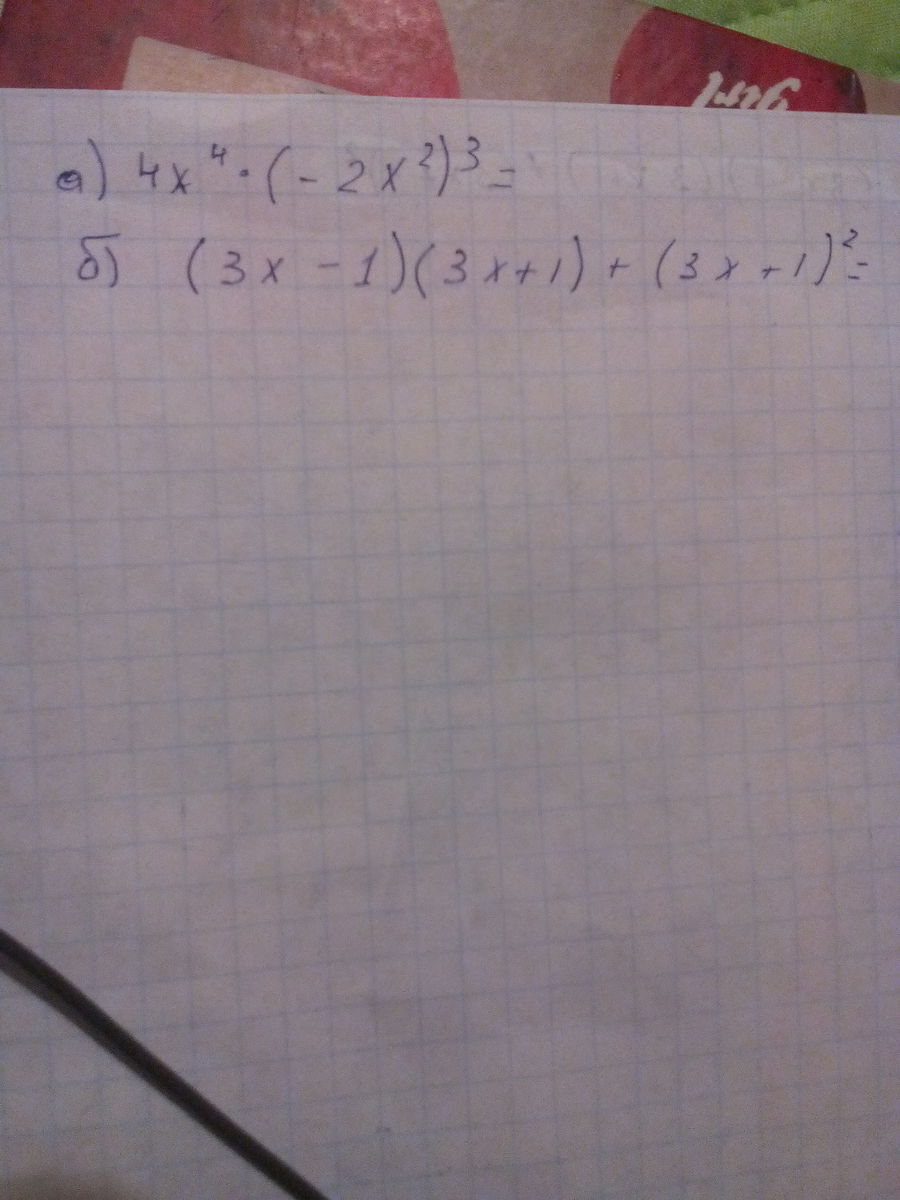 а) 4x⁴·(-2x²)³=
б) (3x-1)(3x+1)+(3x+1)²=